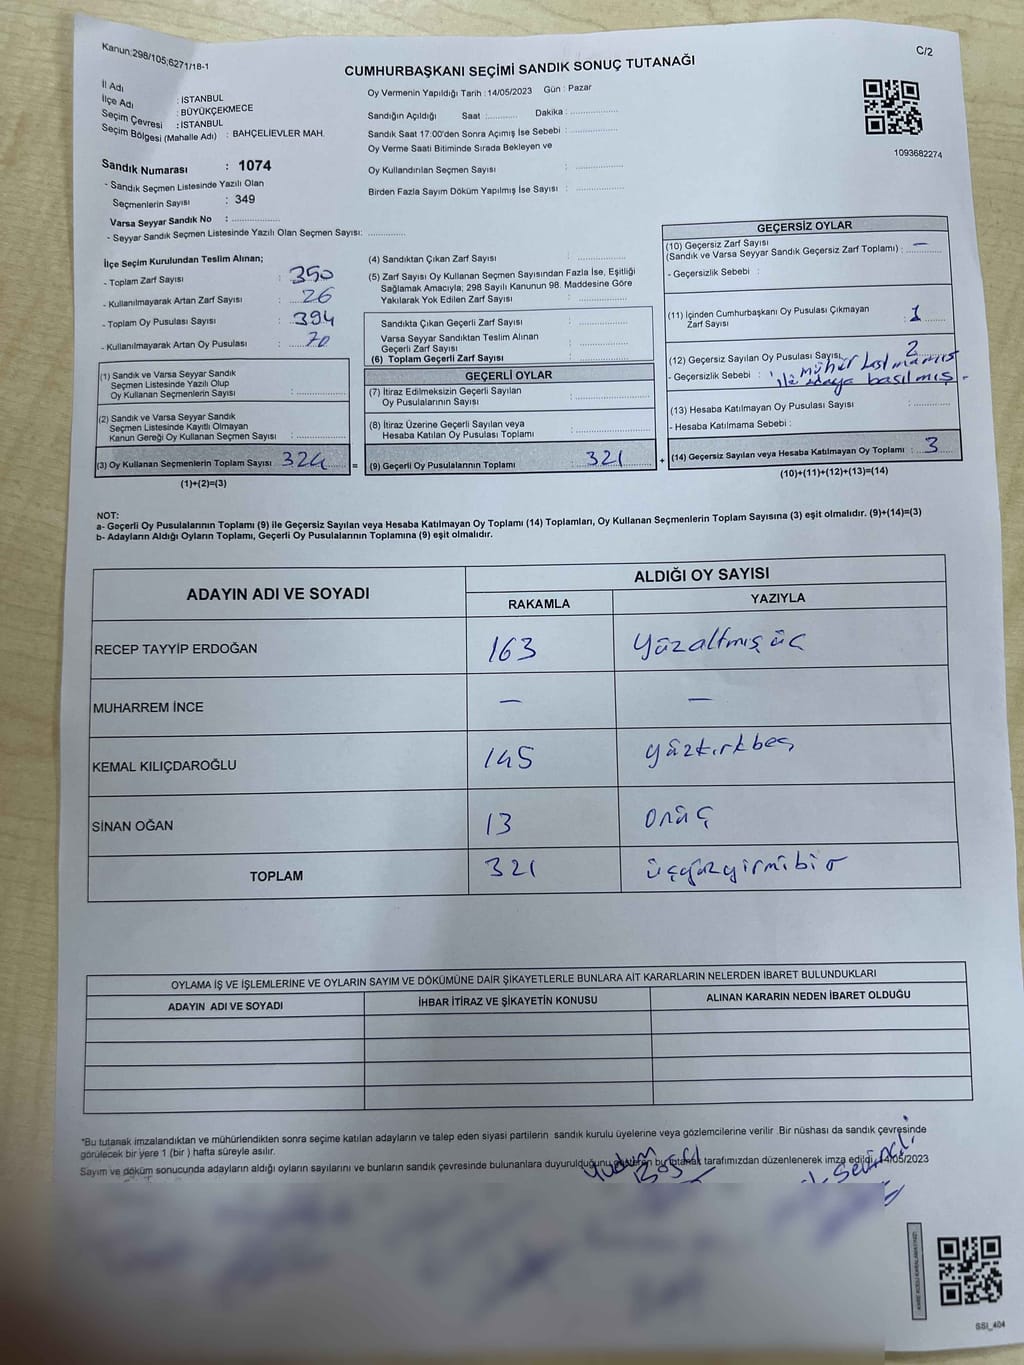 Kanun:298/105;6271/18-1
C/2
CUMHURBAŞKANI SEÇİMİ SANDIK SONUÇ TUTANAĞI
İl Adı : İSTANBUL
İlçe Adı : BÜYÜKÇEKMECE
Seçim Çevresi : İSTANBUL
Seçim Bölgesi (Mahalle Adı) : BAHÇELİEVLER MAH.
Sandık Numarası : 1074
- Sandık Seçmen Listesinde Yazılı Olan
Seçmenlerin Sayısı : 349
Varsa Seyyar Sandık No :
- Seyyar Sandık Seçmen Listesinde Yazılı Olan Seçmen Sayısı:
Oy Vermenin Yapıldığı Tarih : 14/05/2023 Gün : Pazar
Sandığın Açıldığı Saat : Dakika :
Sandık Saat 17:00'den Sonra Açımış İse Sebebi :
Oy Verme Saati Bitiminde Sırada Bekleyen ve
Oy Kullandırılan Seçmen Sayısı :
Birden Fazla Sayım Döküm Yapılmış İse Sayısı :
1093682274
İlçe Seçim Kurulundan Teslim Alınan;
- Toplam Zarf Sayısı : 350
- Kullanılmayarak Artan Zarf Sayısı : 26
- Toplam Oy Pusulası Sayısı : 394
- Kullanılmayarak Artan Oy Pusulası : 70
(1) Sandık ve Varsa Seyyar Sandık
Seçmen Listesinde Yazılı Olup
Oy Kullanan Seçmenlerin Sayısı :
(2) Sandık ve Varsa Seyyar Sandık
Seçmen Listesinde Kayıtlı Olmayan
Kanun Gereği Oy Kullanan Seçmen Sayısı :
(3) Oy Kullanan Seçmenlerin Toplam Sayısı 324 =
(1)+(2)=(3)
(4) Sandıktan Çıkan Zarf Sayısı :
(5) Zarf Sayısı Oy Kullanan Seçmen Sayısından Fazla İse, Eşitliği
Sağlamak Amacıyla; 298 Sayılı Kanunun 98. Maddesine Göre
Yakılarak Yok Edilen Zarf Sayısı :
Sandıkta Çıkan Geçerli Zarf Sayısı :
Varsa Seyyar Sandıktan Teslim Alınan
Geçerli Zarf Sayısı :
(6) Toplam Geçerli Zarf Sayısı :
GEÇERLİ OYLAR
(7) İtiraz Edilmeksizin Geçerli Sayılan
Oy Pusulalarının Sayısı :
(8) İtiraz Üzerine Geçerli Sayılan veya
Hesaba Katılan Oy Pusulası Toplamı :
(9) Geçerli Oy Pusulalarının Toplamı : 321 +
GEÇERSİZ OYLAR
(10) Geçersiz Zarf Sayısı
(Sandık ve Varsa Seyyar Sandık Geçersiz Zarf Toplamı) : —
- Geçersizlik Sebebi :
(11) İçinden Cumhurbaşkanı Oy Pusulası Çıkmayan
Zarf Sayısı : 1
(12) Geçersiz Sayılan Oy Pusulası Sayısı 2
- Geçersizlik Sebebi : mühür basılmamış
basılmış
(13) Hesaba Katılmayan Oy Pusulası Sayısı :
- Hesaba Katılmama Sebebi :
(14) Geçersiz Sayılan veya Hesaba Katılmayan Oy Toplamı : 3
(10)+(11)+(12)+(13)=(14)
NOT:
a- Geçerli Oy Pusulalarının Toplamı (9) ile Geçersiz Sayılan veya Hesaba Katılmayan Oy Toplamı (14) Toplamları, Oy Kullanan Seçmenlerin Toplam Sayısına (3) eşit olmalıdır. (9)+(14)=(3)
b- Adayların Aldığı Oyların Toplamı, Geçerli Oy Pusulalarının Toplamına (9) eşit olmalıdır.
ADAYIN ADI VE SOYADI
ALDIĞI OY SAYISI
RAKAMLA YAZIYLA
RECEP TAYYİP ERDOĞAN 163 yüzaltmışüç
MUHARREM İNCE — —
KEMAL KILIÇDAROĞLU 145 yüzkırkbeş
SİNAN OĞAN 13 onüç
TOPLAM 321 üçyüzyirmibir
OYLAMA İŞ VE İŞLEMLERİNE VE OYLARIN SAYIM VE DÖKÜMÜNE DAİR ŞİKAYETLERLE BUNLARA AİT KARARLARIN NELERDEN İBARET BULUNDUKLARI
ADAYIN ADI VE SOYADI İHBAR İTİRAZ VE ŞİKAYETİN KONUSU ALINAN KARARIN NEDEN İBARET OLDUĞU
*Bu tutanak imzalandıktan ve mühürlendikten sonra seçime katılan adayların ve talep eden siyasi partilerin sandık kurulu üyelerine veya gözlemcilerine verilir .Bir nüshası da sandık çevresinde
görülecek bir yere 1 (bir ) hafta süreyle asılır.
Sayım ve döküm sonucunda adayların aldığı oyların sayılarını ve bunların sandık çevresinde bulunanlara duyurulduğunu gösteren bu tutanak tarafımızdan düzenlenerek imza edildi. 14/05/2023
SSI_404